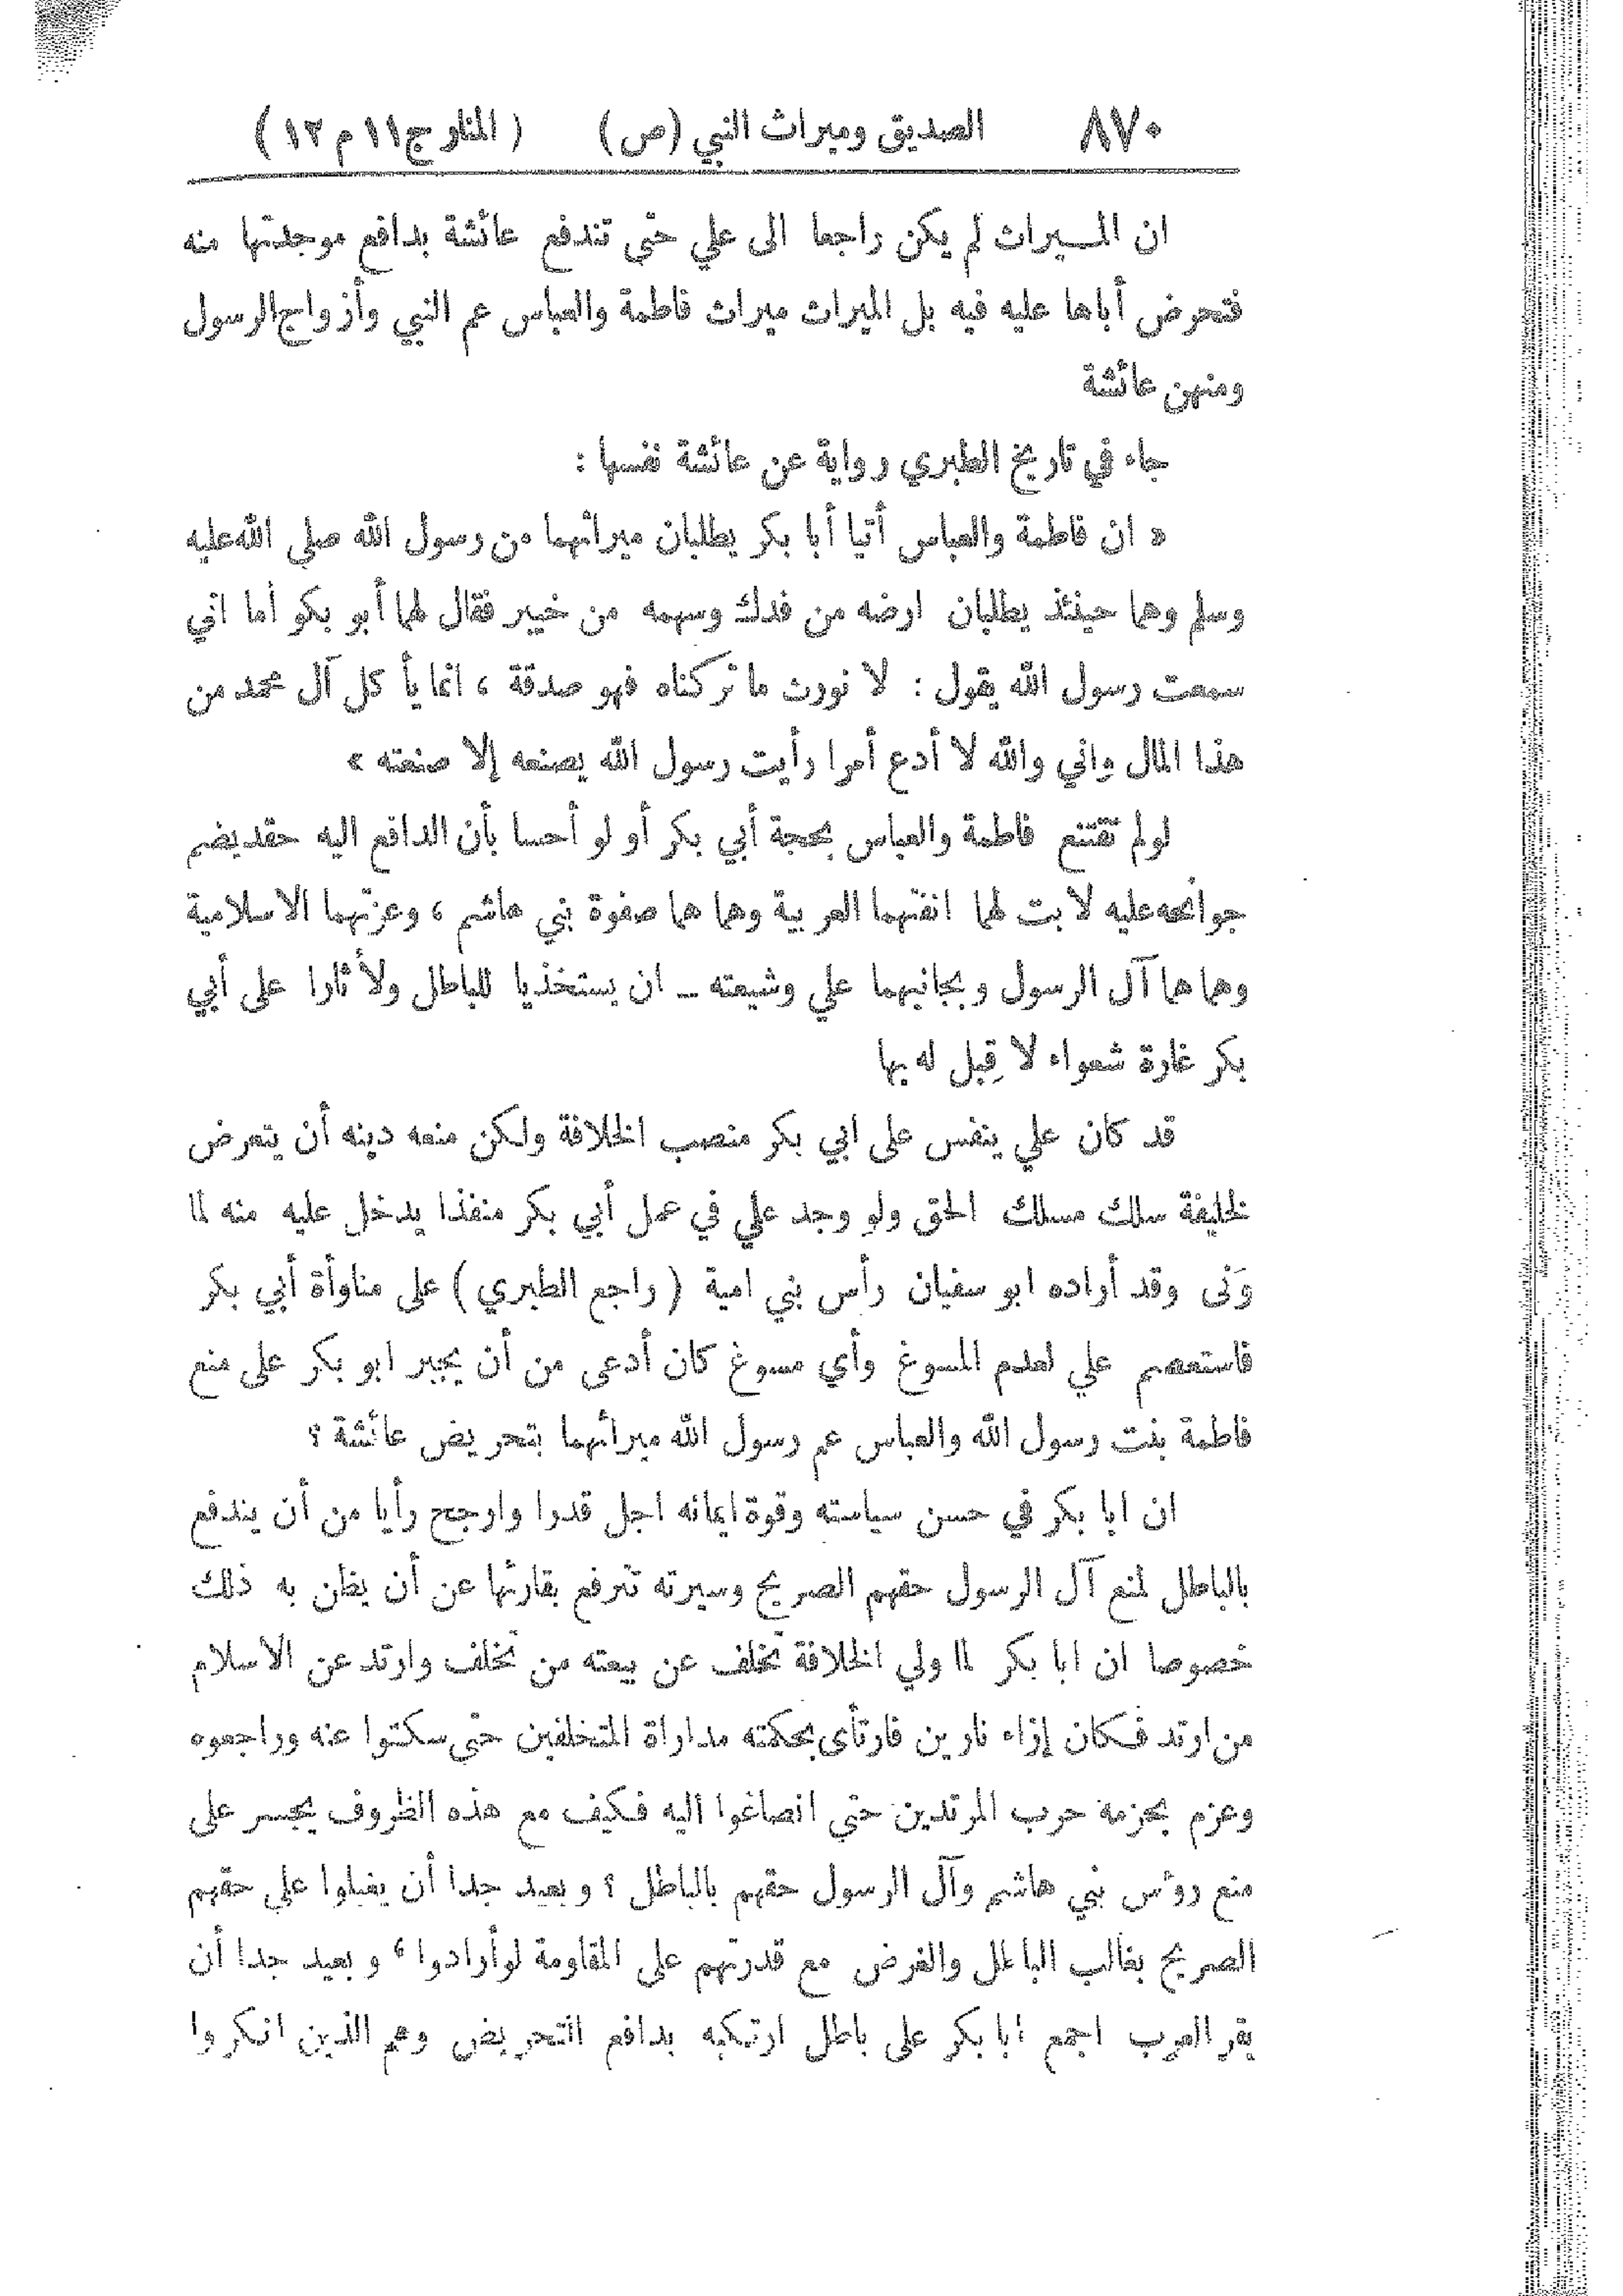 ٨٧٠ الصديق وميراث النبي (ص) ( المنار ج ١١ م ١٣ )
ان المـيراث لم يكن راجعا الى علي حتى تندفع عائشة بدافع موجدتها منه
فتحرض أباها عليه فيه بل الميراث ميراث فاطمة والعباس عم النبي وأزواج الرسول
ومنهن عائشة
جاء في تاريخ الطبري رواية عن عائشة نفسها :
« ان فاطمة والعباس أتيا أبا بكر يطلبان ميراثهما من رسول الله صلى الله عليه
وسلم وهما حينئذ يطلبان ارضه من فدك وسهمه من خيبر فقال لهما أبو بكر أما اني
سمعت رسول الله يقول : لا نورث ما تركناه فهو صدقة ، انما يأ كل آل محمد من
هذا المال واني والله لا أدع أمرا رأيت رسول الله يصنعه إلا صنعته »
لو لم تقتنع فاطمة والعباس بحجة أبي بكر أو لو أحسا بأن الدافع اليه حقد يضم
جوانحه عليه لأبت لهما انفتهما العربية وهما هما صفوة بني هاشم ، وعزتهما الاسلامية
وهما هما آل الرسول وبجانبهما علي وشيعته ــ ان يستخذيا للباطل ولأثارا على أبي
بكر غارة شعواء لا قِبل له بها
قد كان علي ينفس على ابي بكر منصب الخلافة ولكن منعه دينه أن يتعرض
لخليفة سلك مسلك الحق ولو وجد علي في عمل أبي بكر منفذا يدخل عليه منه لما
وَنى وقد أراده ابو سفيان رأس بني امية ( راجع الطبري ) على مناوأة أبي بكر
فاستعصم علي لعدم المسوغ وأي مسوغ كان أدعى من أن يجبر ابو بكر على منع
فاطمة بنت رسول الله والعباس عم رسول الله ميراثهما بتحريض عائشة ؟
ان ابا بكر في حسن سياسته وقوة ايمانه اجل قدرا وارجح رأيا من أن يندفع
بالباطل لمنع آل الرسول حقهم الصريح وسيرته تترفع بقارئها عن أن يظن به ذلك
خصوصا ان ابا بكر لما ولي الخلافة تخلف عن بيعته من تخلف وارتد عن الاسلام
من ارتد فـكان إزاء نارين فارتأى بحكمته مداراة المتخلفين حتى سكتوا عنه وراجعوه
وعزم بحزمه حرب المرتدين حتى انصاغوا اليه فـكيف مع هذه الظروف يجسر على
منع رؤس بني هاشم وآل الرسول حقهم بالباطل ؟ وبعيد جدا أن يغلبوا على حقهم
الصريح بغالب الباطل والغرض مع قدرتهم على المقاومة لو أرادوا ، وبعيد جدا أن
يقر العرب اجمع ابا بكر على باطل ارتكبه بدافع التحريض وهم الذين انكروا